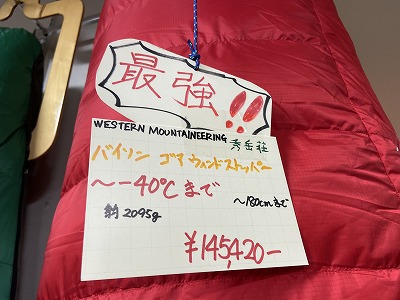 最強!!
WESTERN MOUNTAINEERING 秀岳荘
バイソン ゴア ウィンドストッパー
〜-40℃まで
〜180cmまで
約2095g
¥145,420-